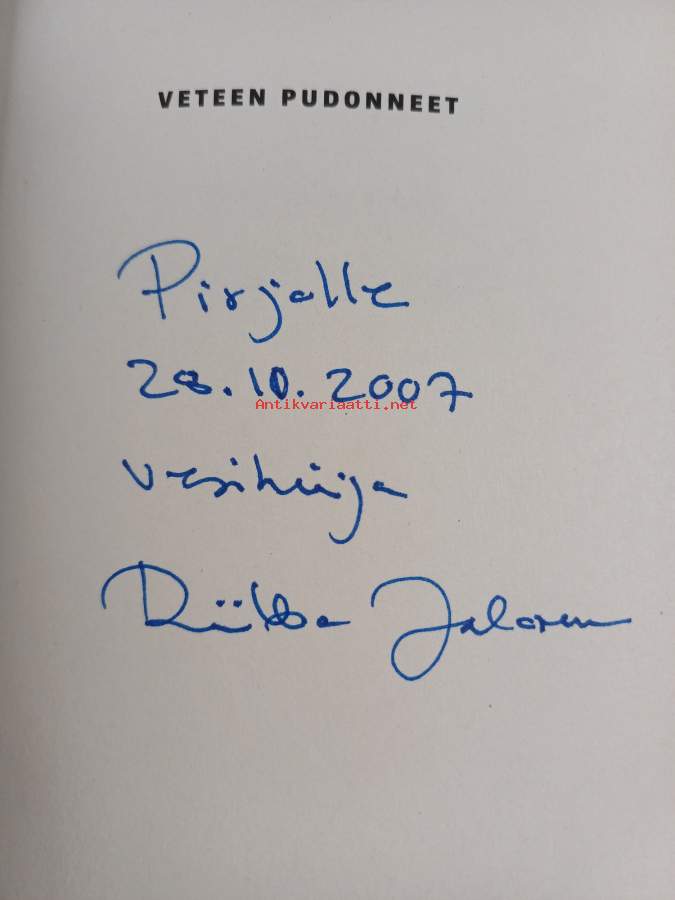 VETEEN PUDONNEET
Pirjolle
28.10.2007
Antikvariaatti.net
vesihiija
Riikka Jalonen